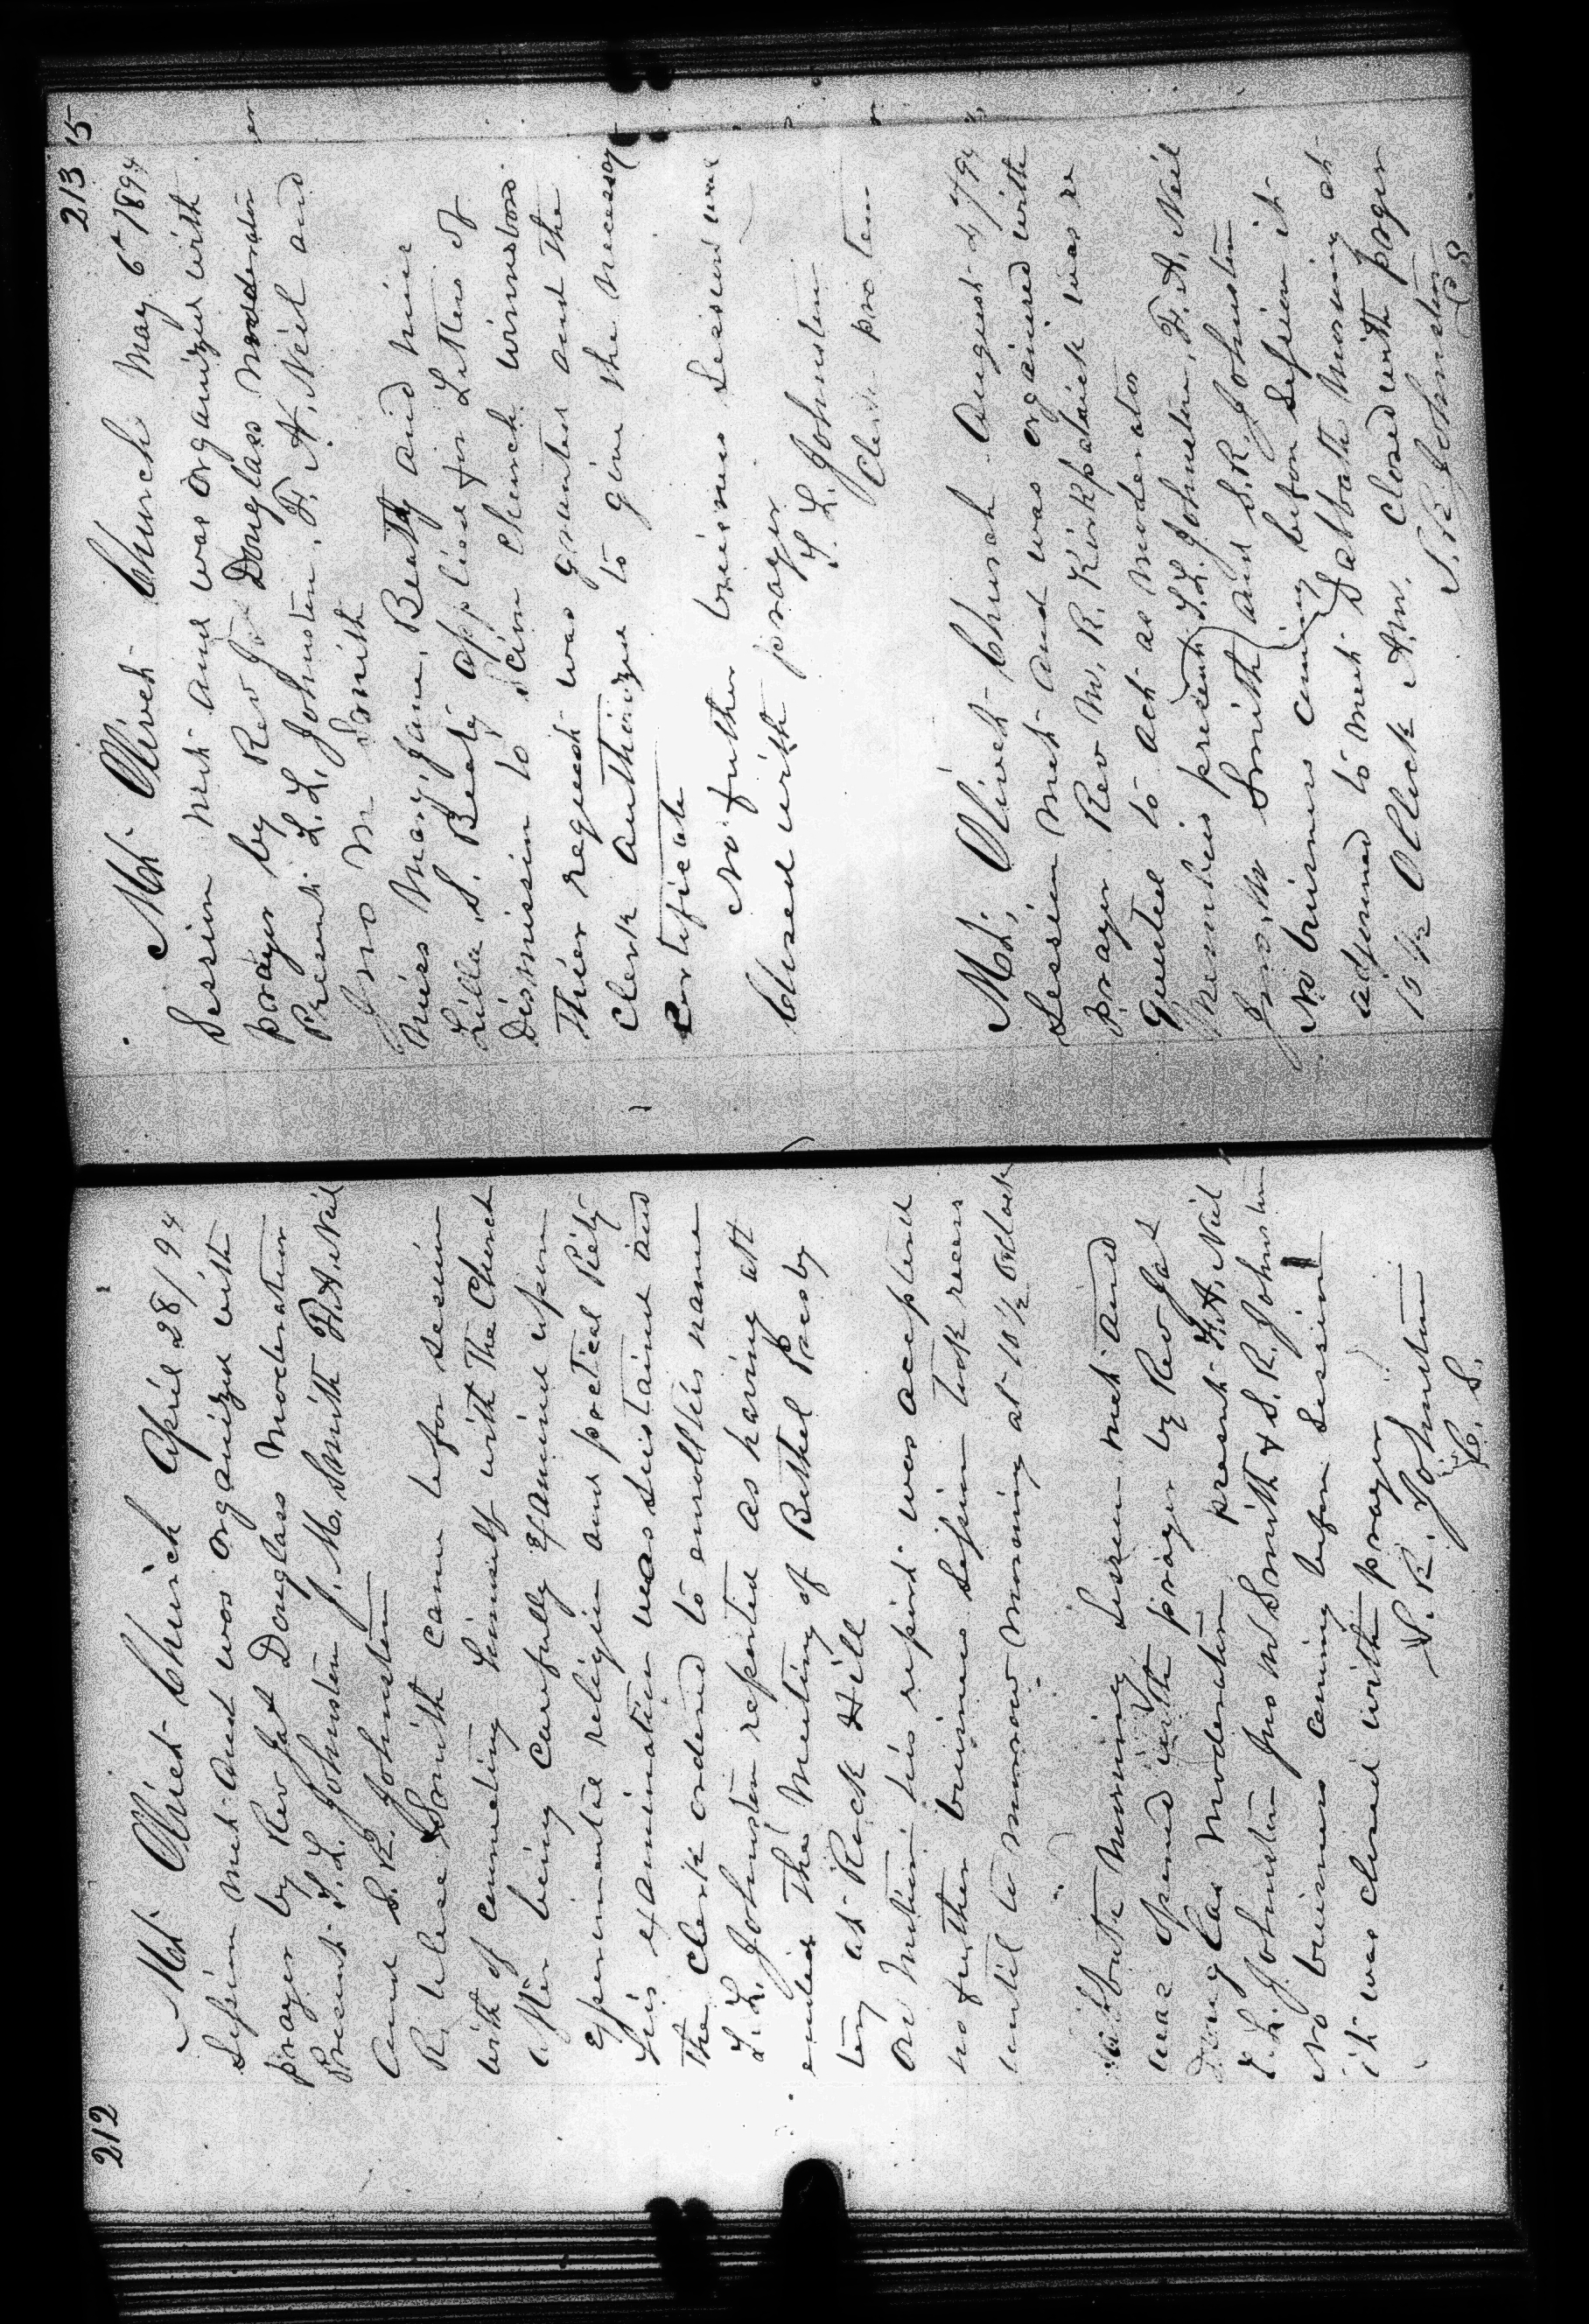 212
Mt Olivet Church April 28/94
Session met and was organized with
prayer by Rev Jas Douglass Moderator
Present T. L. Johnston J. M. Smith F. A. Neil
and S. R. Johnston
R. Wilse Smith came befor session
with of connecting himself with The Church
after being carefully examined upon
experimental religion and practical Piety
his examination was sustained and
The Clerk ordered to enroll his name
T. L. Johnston reported as having att
ended The Meeting of Bethel Presby
tery at Rock Hill
On Motion his report was accepted
no further business session took recess
until to morrow morning at 10 ½ Oclock
Sabbath Morning Session met and
was opened with prayer by Rev Jas
Douglas Moderator present F. A. Neil
T. L. Johnston Jno M Smith & S. R. Johnston
No business coming before Session
it was closed with prayer
S. R. Johnston
C. S.
213 15
Mt Olivet Church May 6th 1894
Session met and was organized with
prayer by Rev Jas Douglass Moderator
Present T. L. Johnston, F. A. Neil and
Jno M Smith
Miss Mary Jane Beaty and Miss
Lilla S. Beaty applied for Letters of
Dismission to Sion Church Winnsboro
Thier request was granted and The
Clerk Authorized to give the necessary
certificate
No futher business Session was
Closed with prayer
T. L. Johnston
Clerk pro tem
Mt, Olivet Church August 4/94
Session Met and was organized with
prayer Rev M. R. Kirkpatrick was re
quested to act as Moderator
Members present T. L. Johnston, F. A. Neil
Jno. M Smith and S. R. Johnston
No business coming before Session it
adjourned to meet Sabbath Morning at
10 ½ Oclock A.m. Closed with prayer
S. R. Johnston
C S